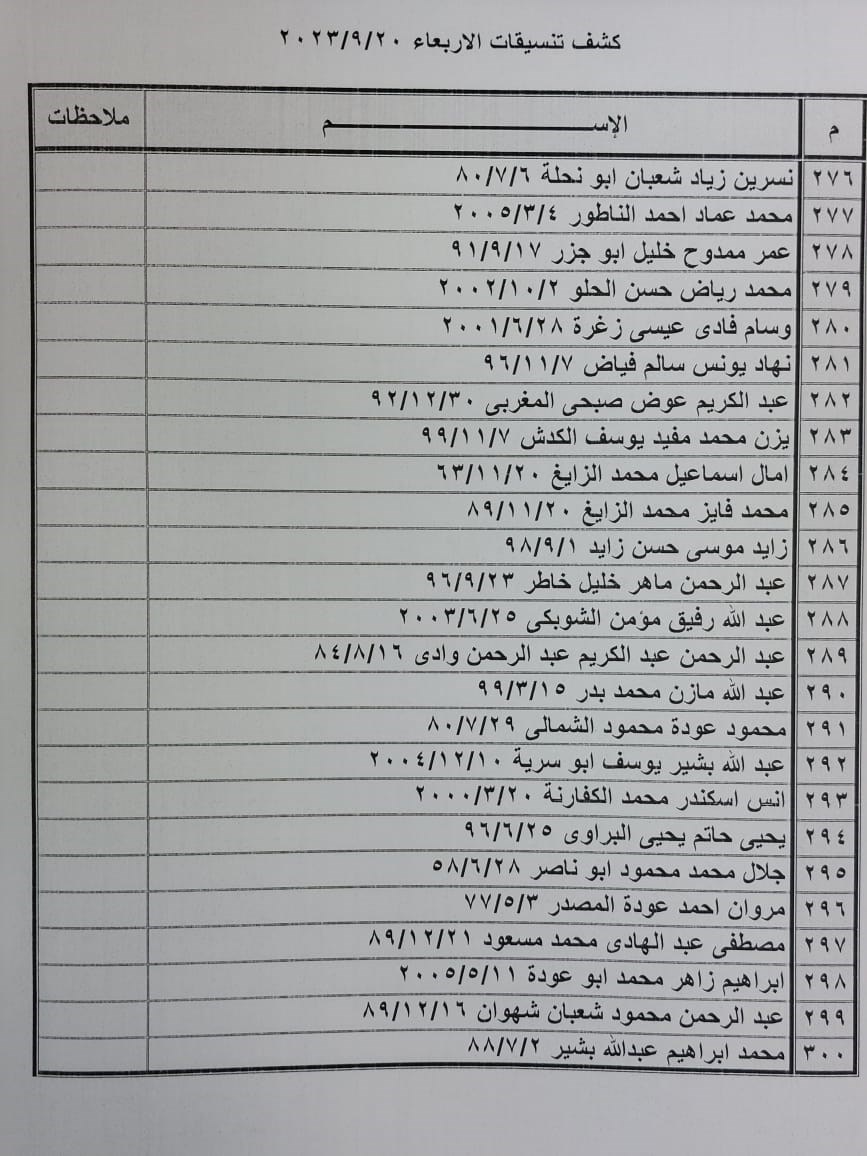 كشف تنسيقات الاربعاء ٢٠٢٣/٩/٢٠
م الإســـــــــــــم ملاحظات
٢٧٦ نسرين زياد شعبان ابو نحلة ٨٠/٧/٦
٢٧٧ محمد عماد احمد الناطور ٢٠٠٥/٣/٤
٢٧٨ عمر ممدوح خليل ابو جزر ٩١/٩/١٧
٢٧٩ محمد رياض حسن الحلو ٢٠٠٢/١٠/٢
٢٨٠ وسام فادى عيسى زغرة ٢٠٠١/٦/٢٨
٢٨١ نهاد يونس سالم فياض ٩٦/١١/٧
٢٨٢ عبد الكريم عوض صبحى المغربى ٩٢/١٢/٣٠
٢٨٣ يزن محمد مفيد يوسف الكدش ٩٩/١١/٧
٢٨٤ امال اسماعيل محمد الزايغ ٦٣/١١/٢٠
٢٨٥ محمد فايز محمد الزايغ ٨٩/١١/٢٠
٢٨٦ زايد موسى حسن زايد ٩٨/٩/١
٢٨٧ عبد الرحمن ماهر خليل خاطر ٩٦/٩/٢٣
٢٨٨ عبد الله رفيق مؤمن الشوبكى ٢٠٠٣/٦/٢٥
٢٨٩ عبد الرحمن عبد الكريم عبد الرحمن وادى ٨٤/٨/١٦
٢٩٠ عبد الله مازن محمد بدر ٩٩/٣/١٥
٢٩١ محمود عودة محمود الشمالى ٨٠/٧/٢٩
٢٩٢ عبد الله بشير يوسف ابو سرية ٢٠٠٤/١٢/١٠
٢٩٣ انس اسكندر محمد الكفارنة ٢٠٠٠/٣/٢٠
٢٩٤ يحيى حاتم يحيى البراوى ٩٦/٦/٢٥
٢٩٥ جلال محمد محمود ابو ناصر ٥٨/٦/٢٨
٢٩٦ مروان احمد عودة المصدر ٧٧/٥/٣
٢٩٧ مصطفى عبد الهادى محمد مسعود ٨٩/١٢/٢١
٢٩٨ ابراهيم زاهر محمد ابو عودة ٢٠٠٥/٥/١١
٢٩٩ عبد الرحمن محمود شعبان شهوان ٨٩/١٢/١٦
٣٠٠ محمد ابراهيم عبدالله بشير ٨٨/٧/٢